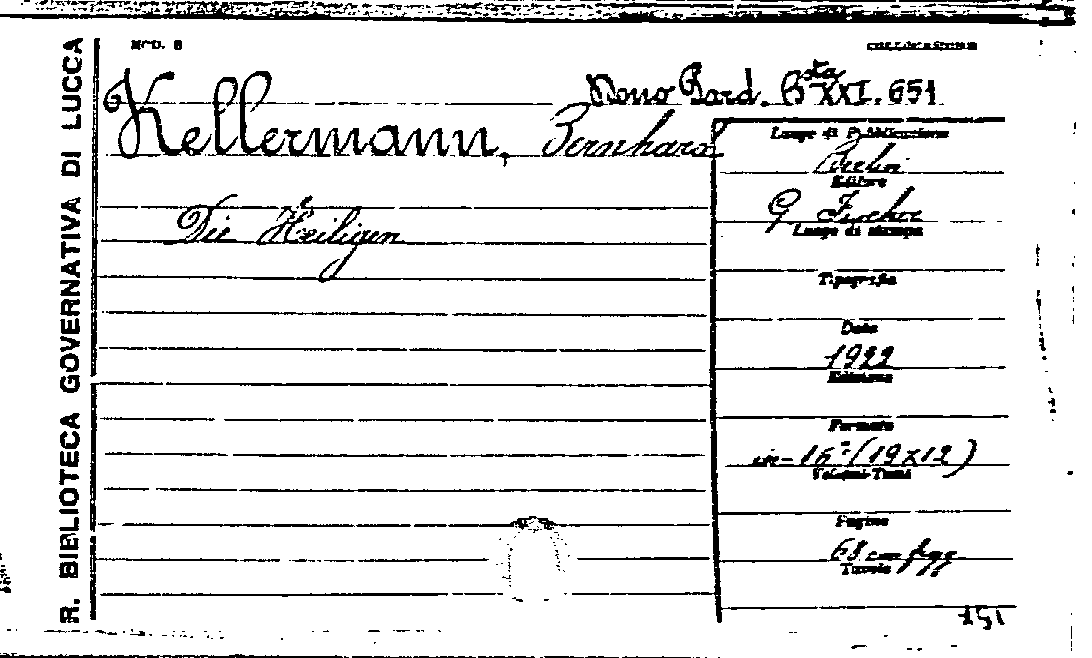 R. BIBLIOTECA GOVERNATIVA DI LUCCA
MOD. B
Mono Bard. Bsta XXI. 651
Kellermann, Bernhard
Die Heiligen
Luogo di Pubblicazione
Berlin
Editore
G Fischer
Luogo di stampa
Tipografia
Data
1922
Edizione
Formato
in-16º (19x12)
Volumi-Tomi
Pagine
68 con figg
Tavole
151